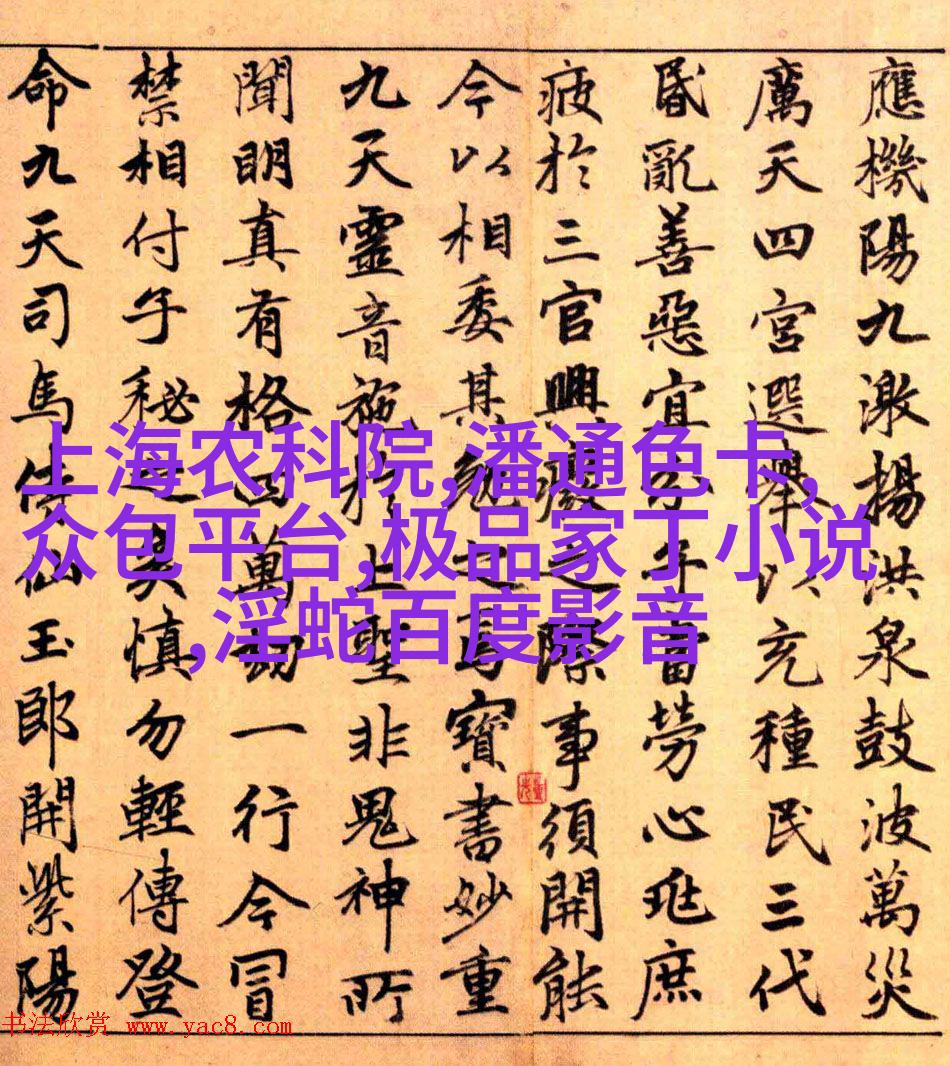 應機陽九激揚洪泉鼓波萬災
厲天四宮選舉以充種民三代
昏亂善惡宜分子當勞心兆庶
疲於三官興廢之際事須開能
今以相委其勉之焉寶書妙重
九天靈音施於上聖非鬼神所
聞明真有格四萬劫一行今冒
禁相付子秘之矣慎勿輕傳登
命九天司馬侍仙玉郎開紫陽
上海农科院,潘通色卡,
众包平台,极品家丁小说
,淫蛇百度影音
书法欣赏 www.yac8.com